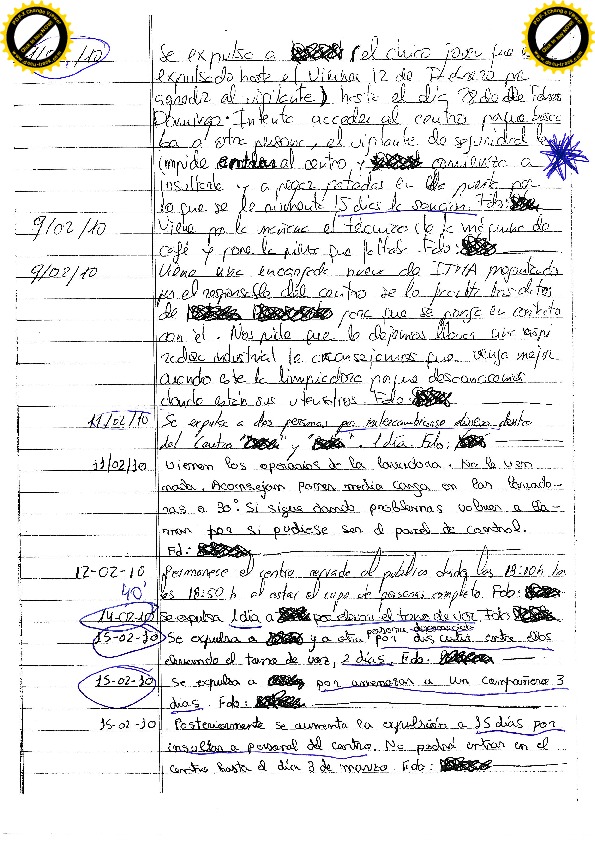 Se expulsa a (el chico joven que
expulsado hasta el Viernes 12 de Febrero por
agredir al vigilante) hasta el día 28 de Febrero
Domingo. Intenta acceder al centro porque busca
ba a otra persona, el vigilante de seguridad le
impide entrar al centro y comienza a
insultarle y a pegar patadas en la puerta por
lo que se le aumenta 15 días la sanción. Fdo:
9/02/10 Viene por la mañana el técnico de la máquina de
café y pone la pieza que faltaba. Fdo:
9/02/10 Viene una encargada nueva de
por el responsable del centro se le facilita los datos
de para que se ponga en contacto
con él. Nos pide que le dejemos
industrial le aconsejamos que venga mejor
cuando esté la limpiadora porque desconocemos
donde están sus utensilios. Fdo:
11/02/10 Se expulsa a dos personas por intercambiarse dentro
del Centro " " y " " 1 día. Fdo:
11/02/10 Vienen los operarios de la lavadora. No le ven
nada. Aconsejan poner media carga en las lavado-
ras a 30°. Si sigue dando problemas volver a lla-
mar por si pudiese ser el panel de control.
Fd:
12-02-10 Permanece el centro cerrado al público desde las 18:10h has
40' las 18:50h al estar el cupo de personas completo. Fdo:
14-02-10 se expulsa 1 día a por elevar el tono de voz Fdo:
15-02-10 Se expulsa a y a otra persona por discutir entre ellos
elevando el tono de voz, 2 días. Fdo:
15-02-10 Se expulsa a por amenazar a un compañero 3
días. Fdo:
15-02-10 Posteriormente se aumenta la expulsión a 15 días por
insultar a personal del centro. No podrá entrar en el
centro hasta el día 3 de marzo. Fdo: